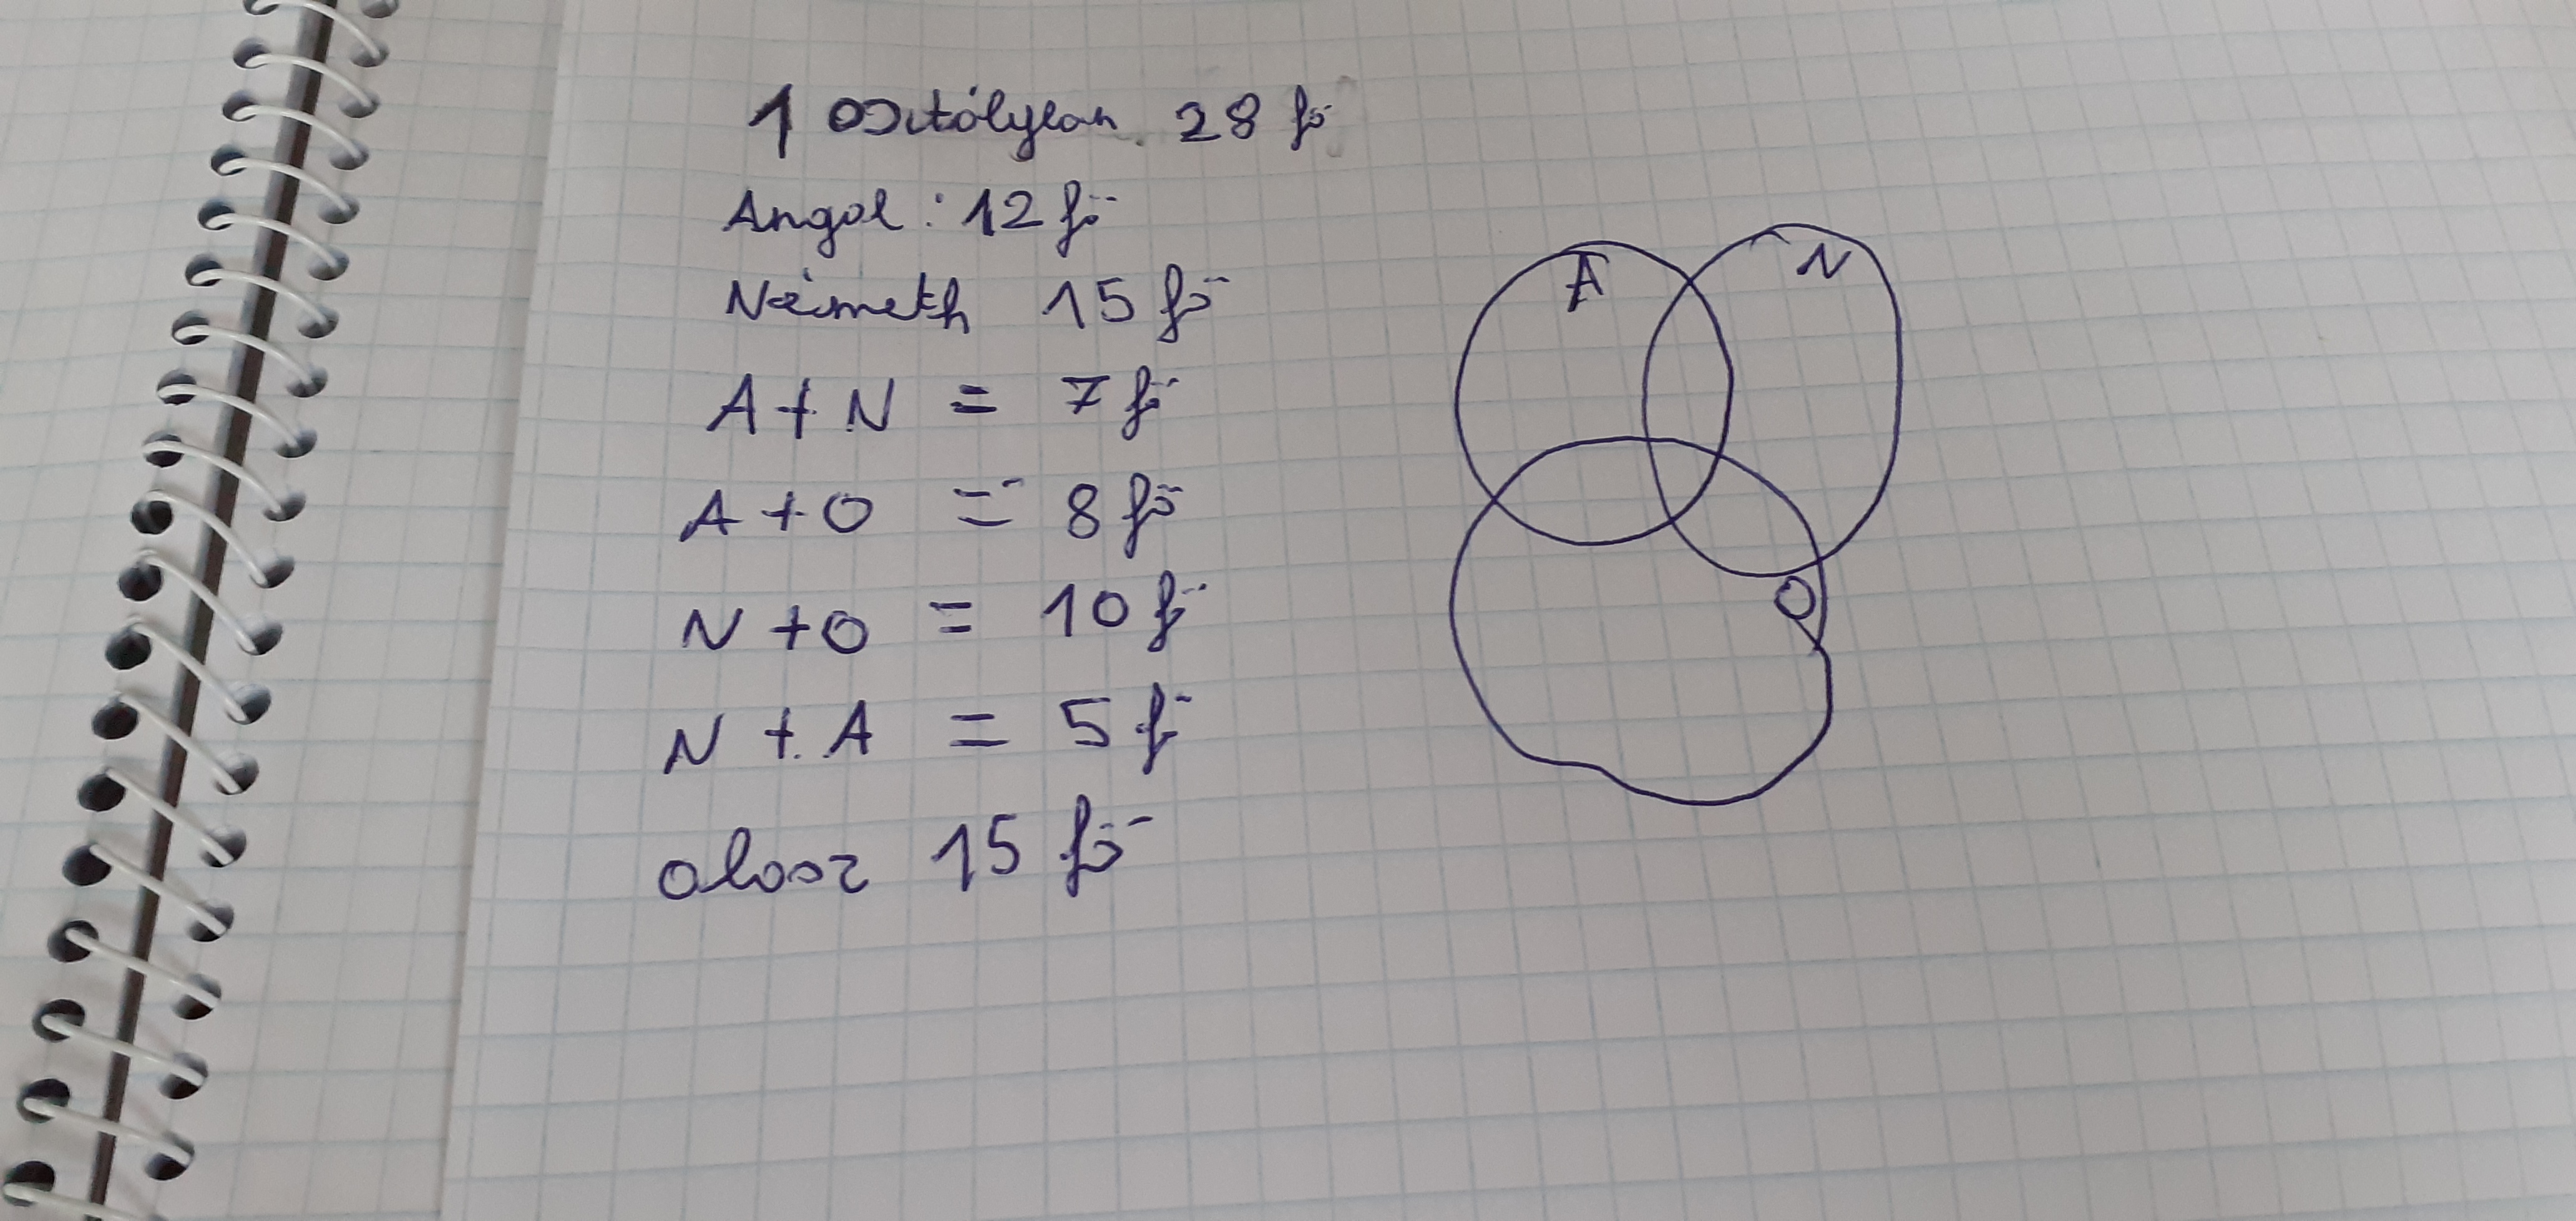 1 osztályban. 28 fő
Angol: 12 fő
Németh 15 fő
A+N = 7 fő
A+O = 8 fő
N+O = 10 fő
N+A = 5 fő
olasz 15 fő
A
N
O